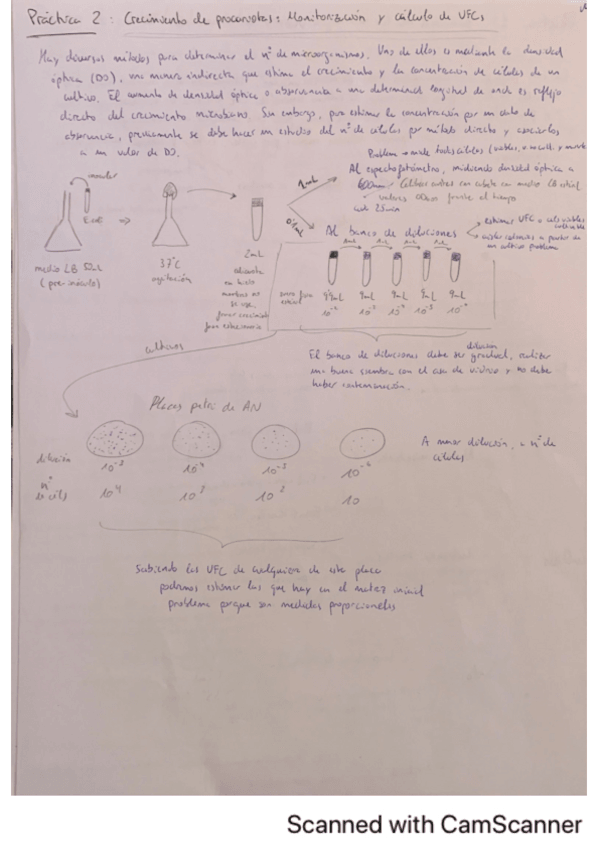 Práctica 2: Crecimiento de procariotas: Monitorización y cálculo de UFCs
Hay diversos métodos para determinar el nº de microorganismos. Uno de ellos es mediante la densidad
óptica (DO), una manera indirecta que estima el crecimiento y la concentración de células de un
cultivo. El aumento de densidad óptica o absorbancia a una determinada longitud de onda es reflejo
directo del crecimiento microbiano. Sin embargo, para estimar la concentración por un dato de
absorbancia, previamente se debe hacer un estudio del nº de células por método directo y asociarlos
a un valor de DO.
Problema → mide todas células (viables, no cult. y muertas
Al espectrofotómetro, midiendo densidad óptica a
600nm
valores frente al tiempo
cada 25min
inocular
E.coli
1mL
0'1mL
medio LB 50mL
(pre-inóculo)
37ºC
agitación
2mL
en hielo
mientras no
se use.
Al banco de diluciones
estimar UFC o cels viables
cultivable
aislar colonias a partir de
un cultivo problema
1mL 1mL 1mL
9'9mL 9mL 9mL 9mL 9mL
10⁻² 10⁻³ 10⁻⁴ 10⁻⁵ 10⁻⁶
cultivos
dilución
El banco de diluciones debe ser gradual, realizar
una buena siembra con el asa de vidrio y no debe
haber contaminación.
Placas petri de AN
dilución 10⁻³ 10⁻⁴ 10⁻⁵ 10⁻⁶
nº
de céls 10⁴ 10³ 10² 10
A menor dilución, + nº de
células
Sabiendo las UFC de cualquiera de estas placas
podremos estimar las que hay en el matraz inicial
problema porque son medidas proporcionales
Scanned with CamScanner